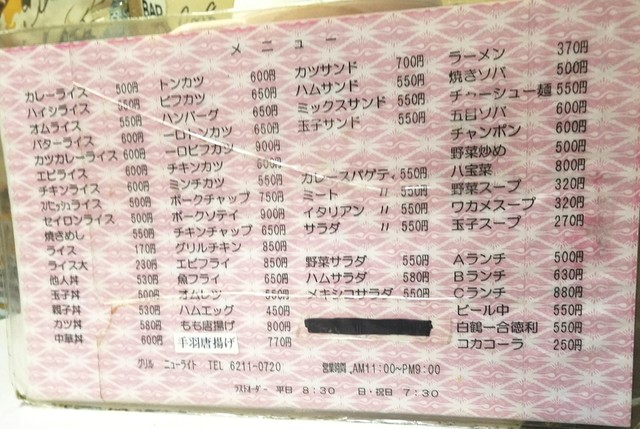 BAR
メニュー
カレーライス 500円
ハイシライス 550円
オムライス 550円
バターライス 600円
カツカレーライス 600円
エビライス 600円
チキンライス 600円
スパニッシュライス 500円
セイロンライス 500円
焼きめし 550円
ライス 170円
ライス大 230円
他人丼 530円
玉子丼 500円
親子丼 530円
カツ丼 580円
中華丼 600円
トンカツ 600円
ビフカツ 650円
ハンバーグ 650円
一口トンカツ 650円
一口ビフカツ 900円
チキンカツ 600円
ミンチカツ 550円
ポークチャップ 750円
ポークソテイ 900円
チキンチャップ 650円
グリルチキン 850円
エビフライ 850円
魚フライ 650円
オムレツ 550円
ハムエッグ 450円
もも唐揚げ 800円
手羽唐揚げ 770円
カツサンド 700円
ハムサンド 550円
ミックスサンド 550円
玉子サンド 550円
カレースパゲティ 550円
ミート 〃 550円
イタリアン 〃 550円
サラダ 〃 550円
野菜サラダ 550円
ハムサラダ 580円
メキシコサラダ 550円
ラーメン 370円
焼きソバ 500円
チャーシュー麺 550円
五目ソバ 600円
チャンポン 600円
野菜炒め 500円
八宝菜 800円
野菜スープ 320円
ワカメスープ 320円
玉子スープ 270円
Aランチ 500円
Bランチ 630円
Cランチ 880円
ビール中 550円
白鶴一合徳利 550円
コカコーラ 250円
グリル ニューライト TEL 6211-0720 営業時間 AM11:00~PM9:00
ラストオーダー 平日 8:30 日・祝日 7:30